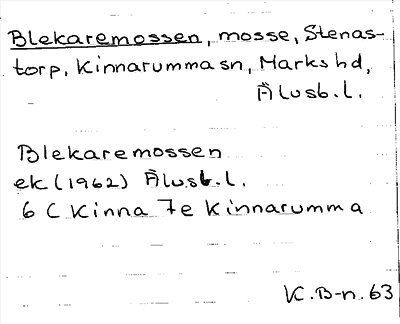 Blekaremossen, mosse, Stenas-
torp, Kinnarumma sn, Marks hd,
Älvsb. l.
Blekaremossen
ek (1962) Älvsb. l.
6 C Kinna 7e Kinnarumma
K. B-n. 63